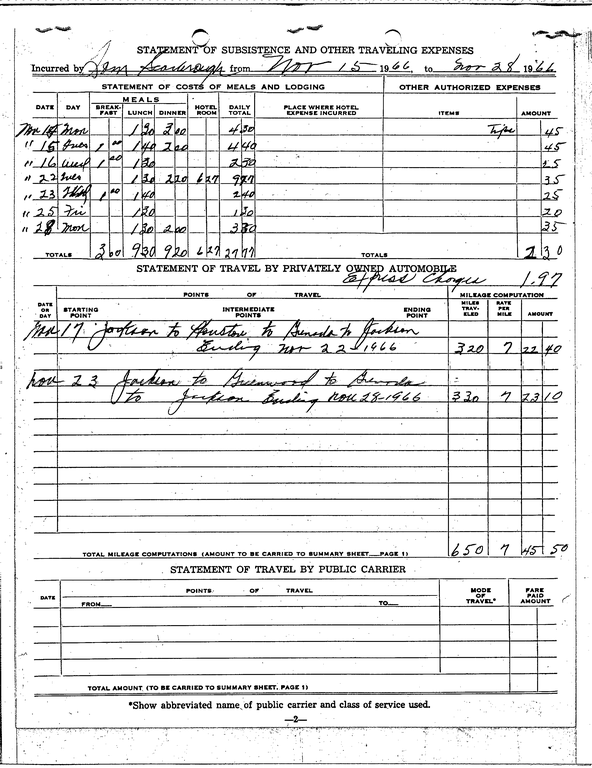 STATEMENT OF SUBSISTENCE AND OTHER TRAVELING EXPENSES
Incurred by Tom Scarbrough from Nov 15 1966, to Nov 28, 1966
STATEMENT OF COSTS OF MEALS AND LODGING OTHER AUTHORIZED EXPENSES
DATE DAY MEALS BREAKFAST LUNCH DINNER HOTEL ROOM DAILY TOTAL PLACE WHERE HOTEL EXPENSE INCURRED ITEMS AMOUNT
Nov 14 Mon 1 30 3 00 4 30 Tips 45
" 15 Tues 1 00 1 40 2 00 4 40 45
" 16 Wed 1 00 1 30 2 30 25
" 22 Tues 1 30 2 20 6 27 9 77 35
" 23 1 00 1 40 2 40 25
" 25 Fri 1 30 1 30 20
" 28 Mon 1 30 2 00 3 30 35
TOTALS 3 00 9 30 9 20 6 27 27 77 TOTALS 2 30
STATEMENT OF TRAVEL BY PRIVATELY OWNED AUTOMOBILE
Express Charges 1.97
DATE OR DAY POINTS OF TRAVEL MILEAGE COMPUTATION
STARTING POINT INTERMEDIATE POINTS ENDING POINT MILES TRAVELED RATE PER MILE AMOUNT
Nov 17 Jackson to Houston to Grenada to Jackson
Ending Nov 22-1966 320 7 22 40
Nov 23 Jackson to Greenwood to Grenada
to Jackson Ending Nov 28-1966 330 7 23 10
TOTAL MILEAGE COMPUTATIONS (AMOUNT TO BE CARRIED TO SUMMARY SHEET—PAGE 1) 650 7 45 50
STATEMENT OF TRAVEL BY PUBLIC CARRIER
DATE POINTS OF TRAVEL MODE OF TRAVEL* FARE PAID AMOUNT
FROM— TO—
TOTAL AMOUNT (TO BE CARRIED TO SUMMARY SHEET. PAGE 1)
*Show abbreviated name of public carrier and class of service used.
—2—